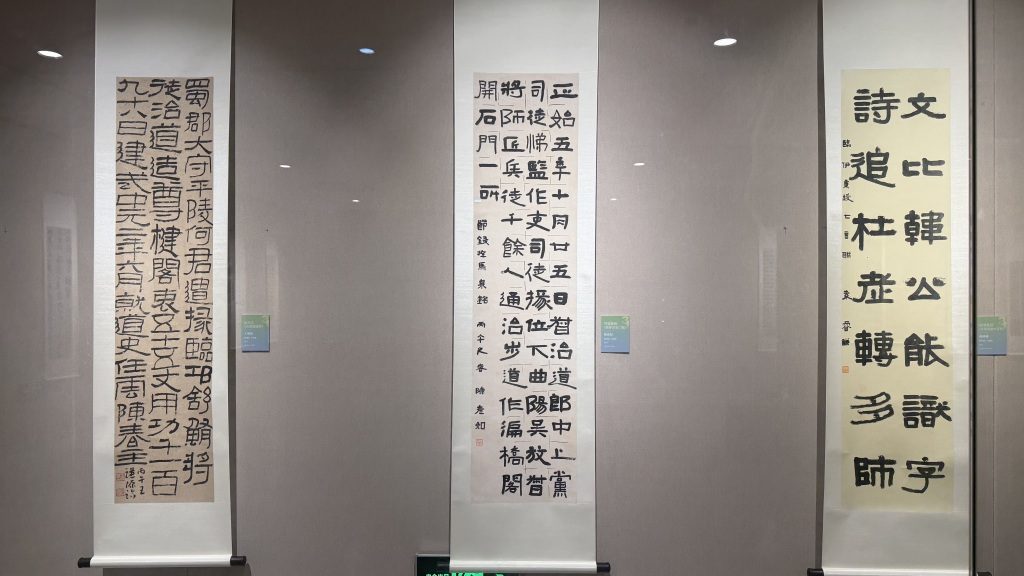 蜀郡大守平陵何君遣掾臨邛舒鮪將
徒治道造尊楗閣袤五十五丈用功千一百
九十八日建武中元二年六月就道史任雲陳春主
丙午
正始五年十月廿五日督治道郎中上黨
司徒悌監作吏司徒掾位下曲陽吳放督
將師匠兵徒千餘人通治步道作徧橋閣
開石門一所
文比韓公能識字
詩追杜老轉多師
臨伊秉綬七言聯